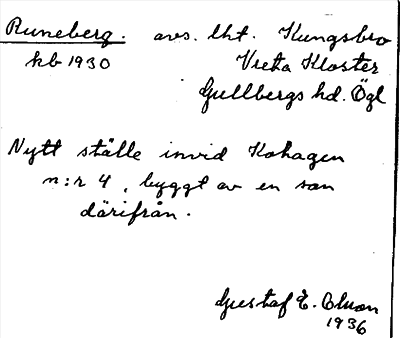 Runeberg. avs. lht. Kungsbro
kb 1930 Vreta Kloster
Gullbergs hd. Ögl
Nytt ställe invid Kohagen
n:r 4, byggt av en son
därifrån.
Gustaf E.
1936